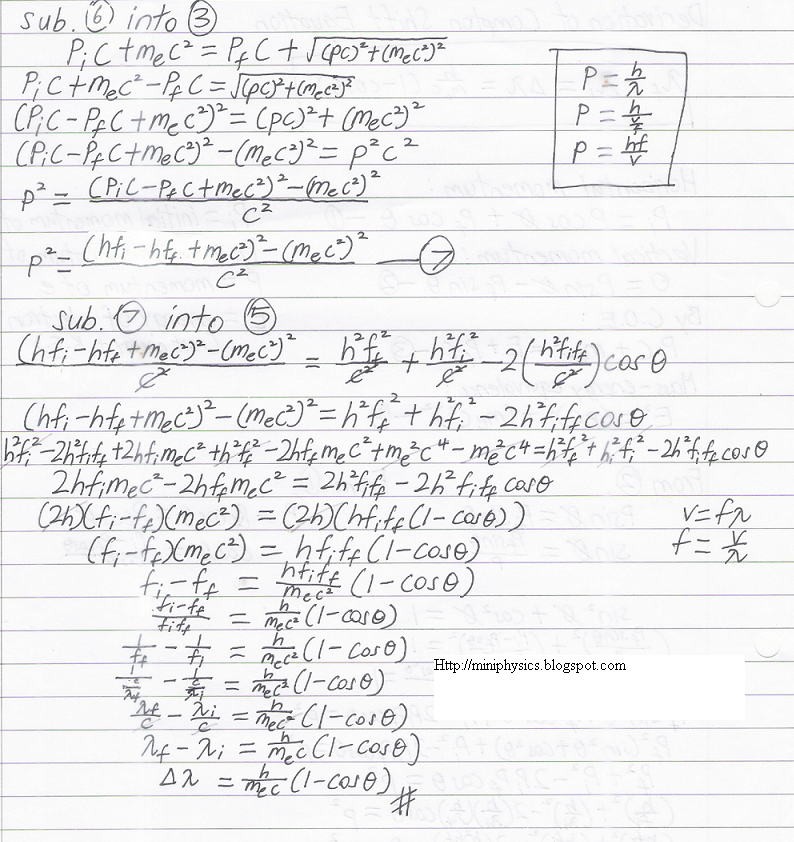 sub. ⑥ into ③
P_i c + m_e c² = P_f c + √((pc)² + (m_e c²)²)
P_i c + m_e c² − P_f c = √((pc)² + (m_e c²)²)
(P_i c − P_f c + m_e c²)² = (pc)² + (m_e c²)²
(P_i c − P_f c + m_e c²)² − (m_e c²)² = p²c²
p² = ((P_i c − P_f c + m_e c²)² − (m_e c²)²)/c²
p² = ((hf_i − hf_f + m_e c²)² − (m_e c²)²)/c² — ⑦
P = h/λ
P = h/(v/f)
P = hf/v
sub. ⑦ into ⑤
((hf_i − hf_f + m_e c²)² − (m_e c²)²)/c² = h²f_f²/c² + h²f_i²/c² − 2(h²f_i f_f/c²) cos θ
(hf_i − hf_f + m_e c²)² − (m_e c²)² = h²f_f² + h²f_i² − 2h²f_i f_f cos θ
h²f_i² − 2h²f_i f_f + 2hf_i m_e c² + h²f_f² − 2hf_f m_e c² + m_e²c⁴ − m_e²c⁴ = h²f_f² + h²f_i² − 2h²f_i f_f cos θ
2hf_i m_e c² − 2hf_f m_e c² = 2h²f_i f_f − 2h²f_i f_f cos θ
(2h)(f_i − f_f)(m_e c²) = (2h)(hf_i f_f (1 − cos θ))
(f_i − f_f)(m_e c²) = hf_i f_f (1 − cos θ)
f_i − f_f = hf_i f_f/(m_e c²) (1 − cos θ)
(f_i − f_f)/(f_i f_f) = h/(m_e c²) (1 − cos θ)
1/f_f − 1/f_i = h/(m_e c²) (1 − cos θ)
1/(c/λ_f) − 1/(c/λ_i) = h/(m_e c²) (1 − cos θ)
λ_f/c − λ_i/c = h/(m_e c²) (1 − cos θ)
λ_f − λ_i = h/(m_e c) (1 − cos θ)
Δλ = h/(m_e c) (1 − cos θ) #
v = fλ
f = v/λ
Http://miniphysics.blogspot.com